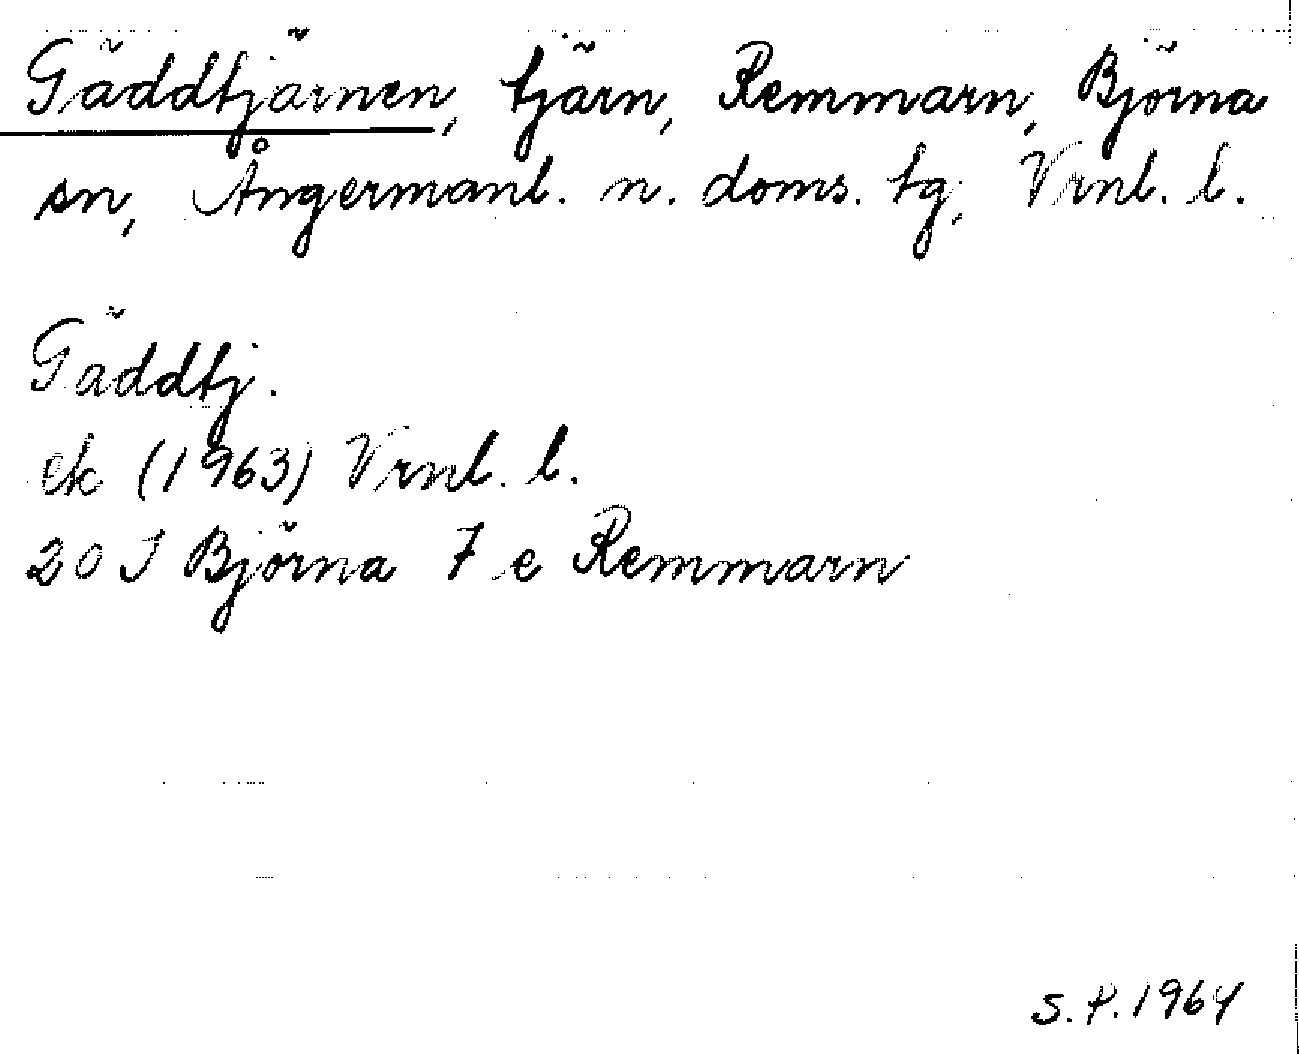 Gäddtjärnen, tjärn, Remmarn, Björna
sn, Ångermanl. n. doms. tg, Vrnl. l.
Gäddtj.
ek (1963) Vrnl. l.
20 J Björna 7 e Remmarn
S.P.1964